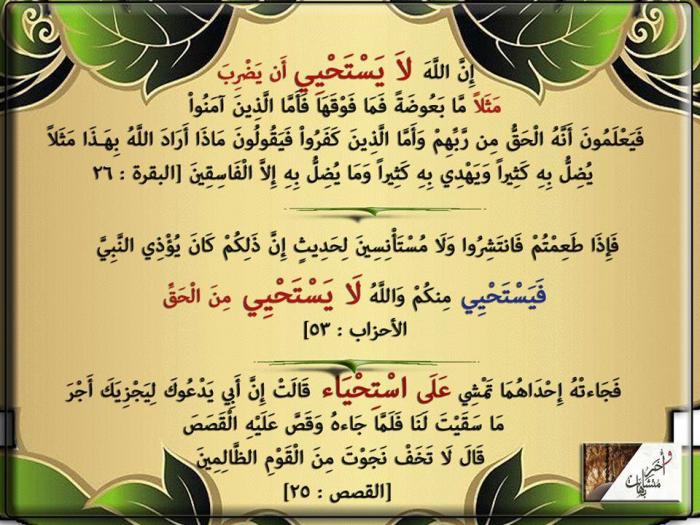 إِنَّ اللَّهَ لاَ يَسْتَحْيِي أَن يَضْرِبَ
مَثَلاً مَّا بَعُوضَةً فَمَا فَوْقَهَا فَأَمَّا الَّذِينَ آمَنُواْ
فَيَعْلَمُونَ أَنَّهُ الْحَقُّ مِن رَّبِّهِمْ وَأَمَّا الَّذِينَ كَفَرُواْ فَيَقُولُونَ مَاذَا أَرَادَ اللَّهُ بِهَـذَا مَثَلاً
يُضِلُّ بِهِ كَثِيراً وَيَهْدِي بِهِ كَثِيراً وَمَا يُضِلُّ بِهِ إِلاَّ الْفَاسِقِينَ [البقرة : ٢٦
فَإِذَا طَعِمْتُمْ فَانتَشِرُوا وَلَا مُسْتَأْنِسِينَ لِحَدِيثٍ إِنَّ ذَلِكُمْ كَانَ يُؤْذِي النَّبِيَّ
فَيَسْتَحْيِي مِنكُمْ وَاللَّهُ لَا يَسْتَحْيِي مِنَ الْحَقِّ
الأحزاب : ٥٣]
فَجَاءتْهُ إِحْدَاهُمَا تَمْشِي عَلَى اسْتِحْيَاء قَالَتْ إِنَّ أَبِي يَدْعُوكَ لِيَجْزِيَكَ أَجْرَ
مَا سَقَيْتَ لَنَا فَلَمَّا جَاءهُ وَقَصَّ عَلَيْهِ الْقَصَصَ
قَالَ لَا تَخَفْ نَجَوْتَ مِنَ الْقَوْمِ الظَّالِمِينَ
[القصص : ٢٥]
وأخر
متشابهات